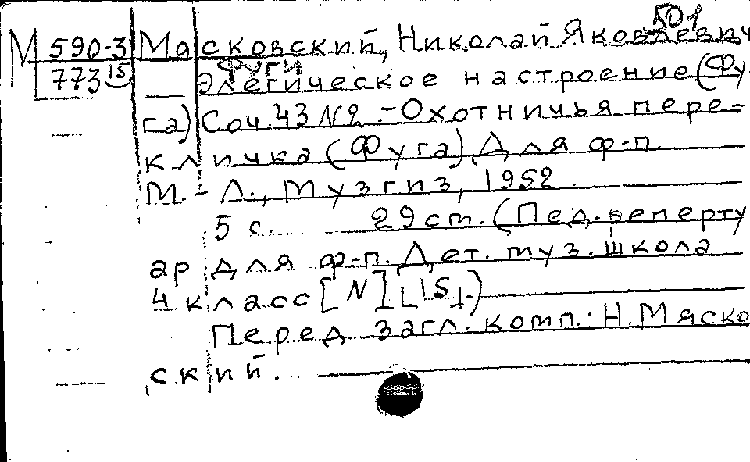 501
М 590-3 Масковский, Николай Яковлевич
773 15 Фуги
Элегическое настроение (Фу
га) Соч. 43 №2. - Охотничья пере-
кличка (Фуга) Для ф-п.
М. - Л., Музгиз, 1952
5 с. 29 ст. (Пед. реперту
ар для ф-п. Дет. муз. школа
4 класс [N]
Перед загл. комп.: Н. Мяско
ский.